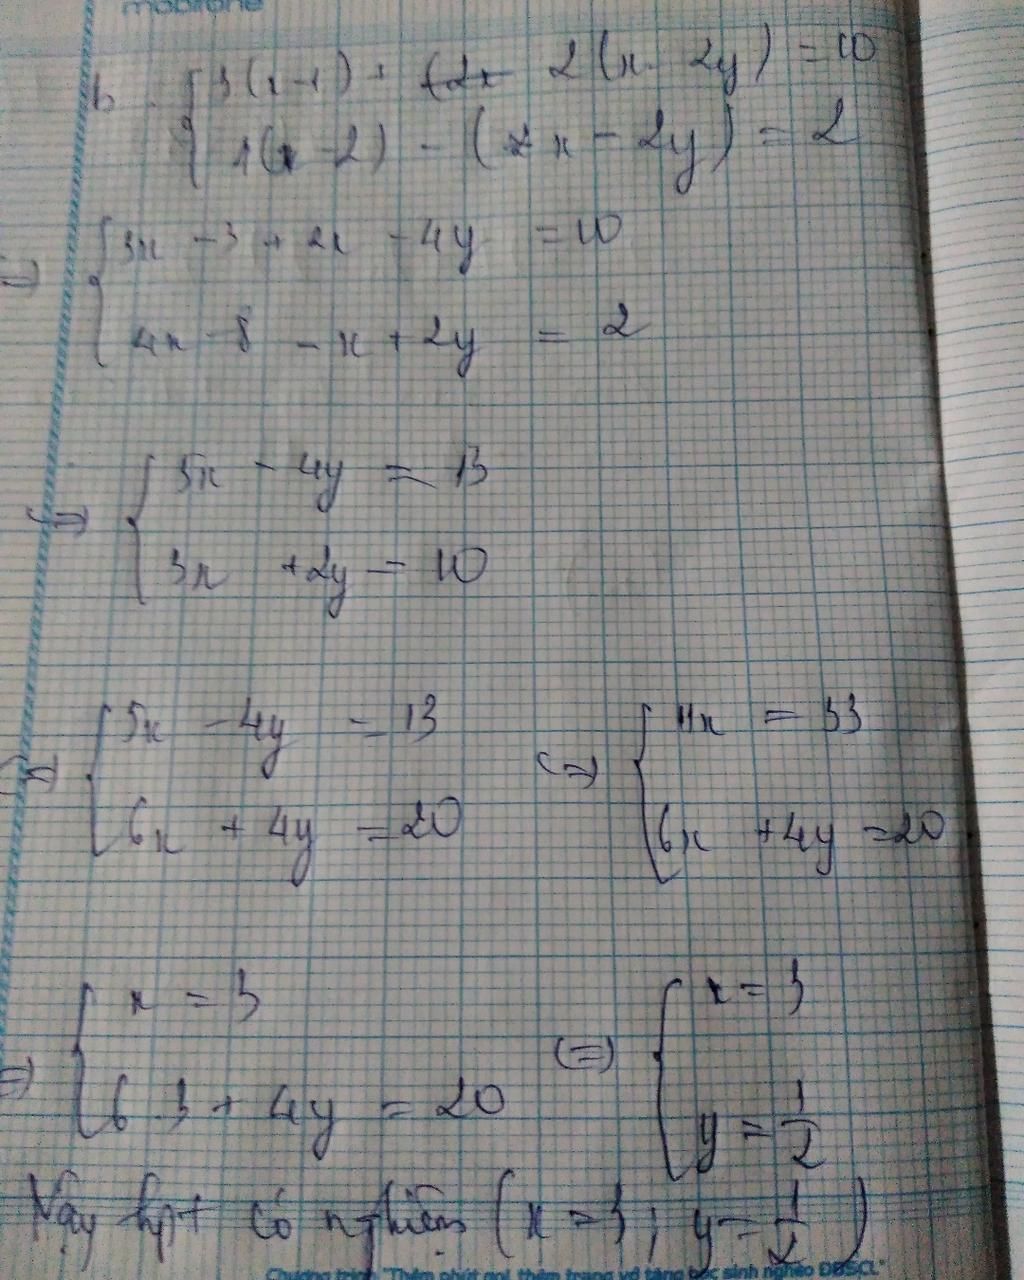 mobifone
b. { 3(x-1) + 2(x - 2y) = 10
4(x-2) - (x - 2y) = 2
=> { 3x - 3 + 2x - 4y = 10
4x - 8 - x + 2y = 2
<=> { 5x - 4y = 13
3x + 2y = 10
<=> { 5x - 4y = 13 <=> { 11x = 33
6x + 4y = 20 6x + 4y = 20
=> { x = 3 <=> { x = 3
6.3 + 4y = 20 y = 1/2
Vậy hpt có nghiệm (x = 3; y = 1/2)
Chương trình "Thêm phút gọi, thêm trang vở tặng học sinh nghèo ĐBSCL"